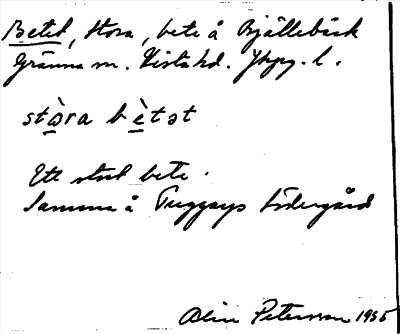 Betet, stora, bete å Bjällebäck
Gränna sn. Vista hd. Jkpg. l.
stòra bètət
Ett stort bete.
Samma å Tuggarps Södergård
Olin Peterson 1935